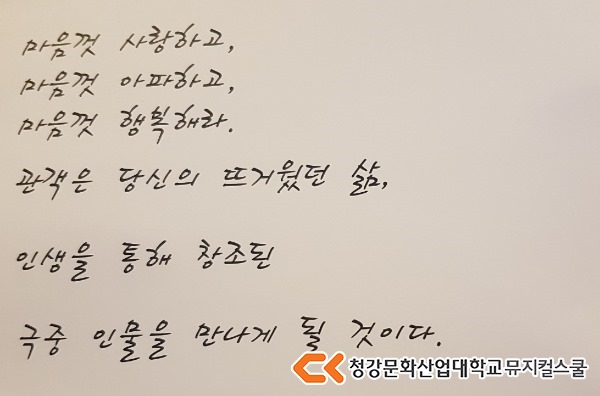 마음껏 사랑하고,
마음껏 아파하고,
마음껏 행복해라.
관객은 당신의 뜨거웠던 삶,
인생을 통해 창조된
극중 인물을 만나게 될 것이다.
청강문화산업대학교 뮤지컬스쿨